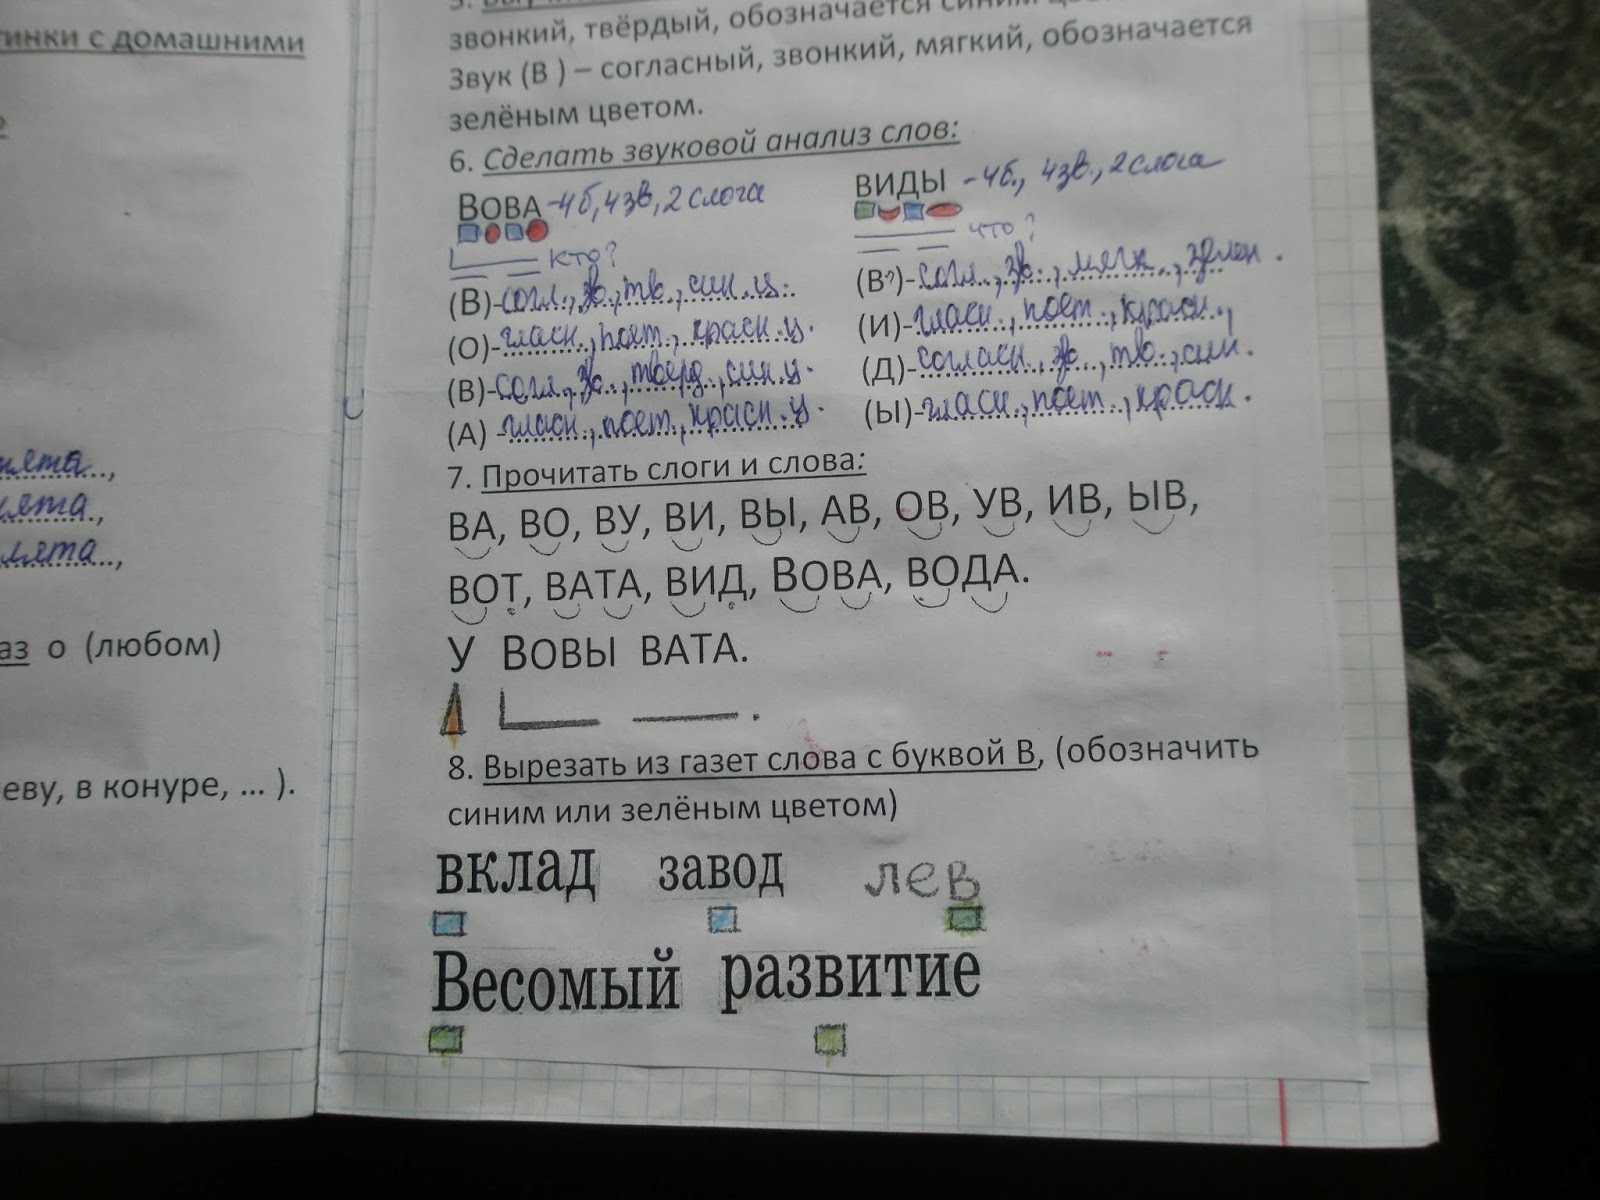 тинки с домашними
нята..,
лята.,
лята..,
аз о (любом)
еву, в конуре, ... ).
звонкий, твёрдый, обозначается синим
Звук (В ) – согласный, звонкий, мягкий, обозначается
зелёным цветом.
6. Сделать звуковой анализ слов:
ВОВА -4б,4зв,2 слога
ВИДЫ -4б., 4зв.,2 слога
кто?
что?
(В)-согл.,зв.,тв.,син.ц.
(О)-гласн.,поет.,красн.ц.
(В)-согл.,зв.,тверд.,син.ц.
(А) -гласн.,поет.,красн.ц.
(В')-согл.,зв.,мягк.,зелен.
(И)-гласн.,поет.,красн.,
(Д)-согласн.,зв.,тв.,син.
(Ы)-гласн.,поет.,красн.
7. Прочитать слоги и слова:
ВА, ВО, ВУ, ВИ, ВЫ, АВ, ОВ, УВ, ИВ, ЫВ,
ВОТ, ВАТА, ВИД, ВОВА, ВОДА.
У ВОВЫ ВАТА.
8. Вырезать из газет слова с буквой В, (обозначить
синим или зелёным цветом)
вклад завод лев
Весомый развитие